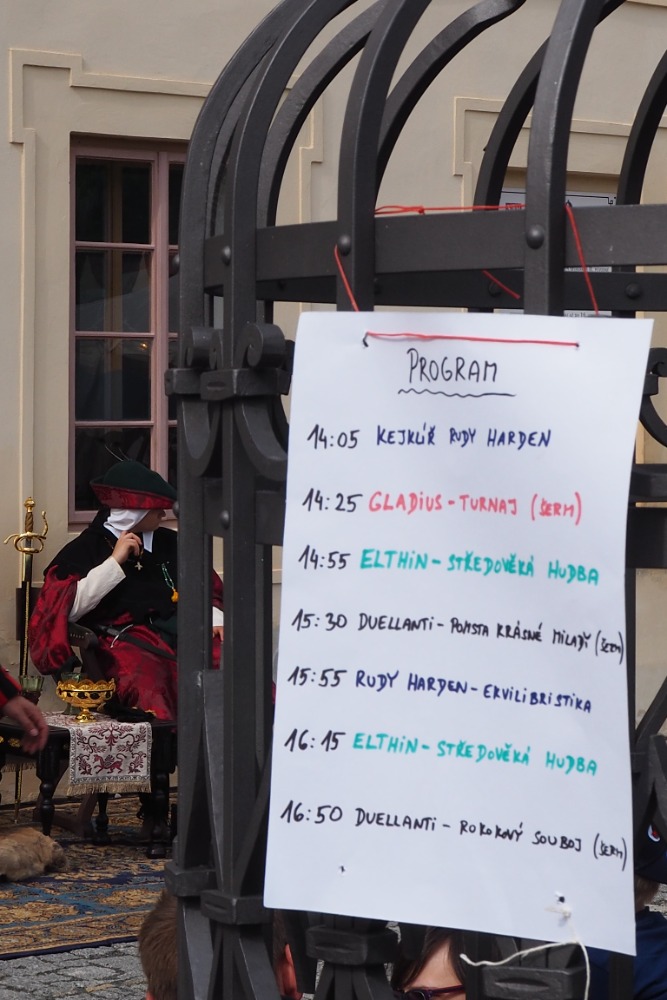 PROGRAM
14:05 KEJKLÍŘ RUDY HARDEN
14:25 GLADIUS - TURNAJ (ŠERM)
14:55 ELTHIN - STŘEDOVĚKÁ HUDBA
15:30 DUELLANTI - POMSTA KRÁSNÉ MILADY (ŠERM)
15:55 RUDY HARDEN - EKVILIBRISTIKA
16:15 ELTHIN - STŘEDOVĚKÁ HUDBA
16:50 DUELLANTI - ROKOKOVÝ SOUBOJ (ŠERM)